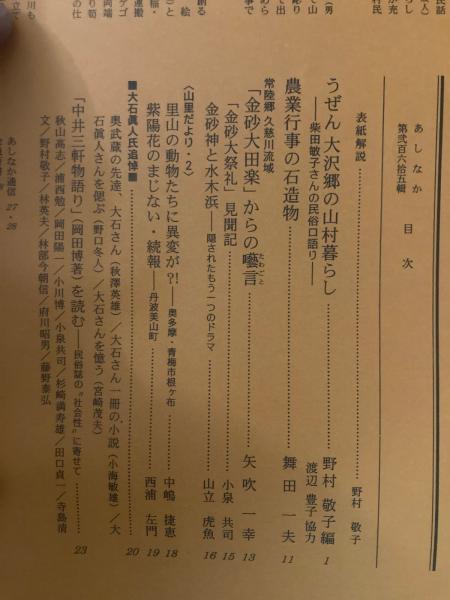 あしなか
第弐百六拾五輯
目次
表紙解説……野村 敬子
うぜん 大沢郷の山村暮らし……野村 敬子編 1
――柴田敏子さんの民俗口語り――
渡辺 豊子協力
農業行事の石造物……舞田 一夫 11
常陸郷 久慈川流域
「金砂大田楽」からの囈言……矢吹 一幸 13
たわごと
「金砂大祭礼」見聞記……小泉 共司 15
金砂神と水木浜――隠されたもう一つのドラマ……山立 虎魚 16
〈山里だより・2〉
里山の動物たちに異変が?!――奥多摩・青梅市根ヶ布……中嶋 捷恵 18
紫陽花のまじない・続報――丹波美山町……西浦 左門 19
■大石眞人氏追悼■……20
奥武蔵の先達、大石さん(秋澤英雄)/大石さん一冊の小説(小海敏雄)/大
石眞人さんを偲ぶ(野口冬人)/大石さんを憶う(宮崎茂夫)
「中井三軒物語り」(岡田博著)を読む――民俗誌の〝社会性〟に寄せて……23
秋山高志/浦西勉/岡田陽一/小川博/小泉共司/杉崎満寿雄/田口貞一/寺島清
文/野村敬子/林英夫/林部今朝信/府川昭男/藤野泰弘
あしなか通信 27・28